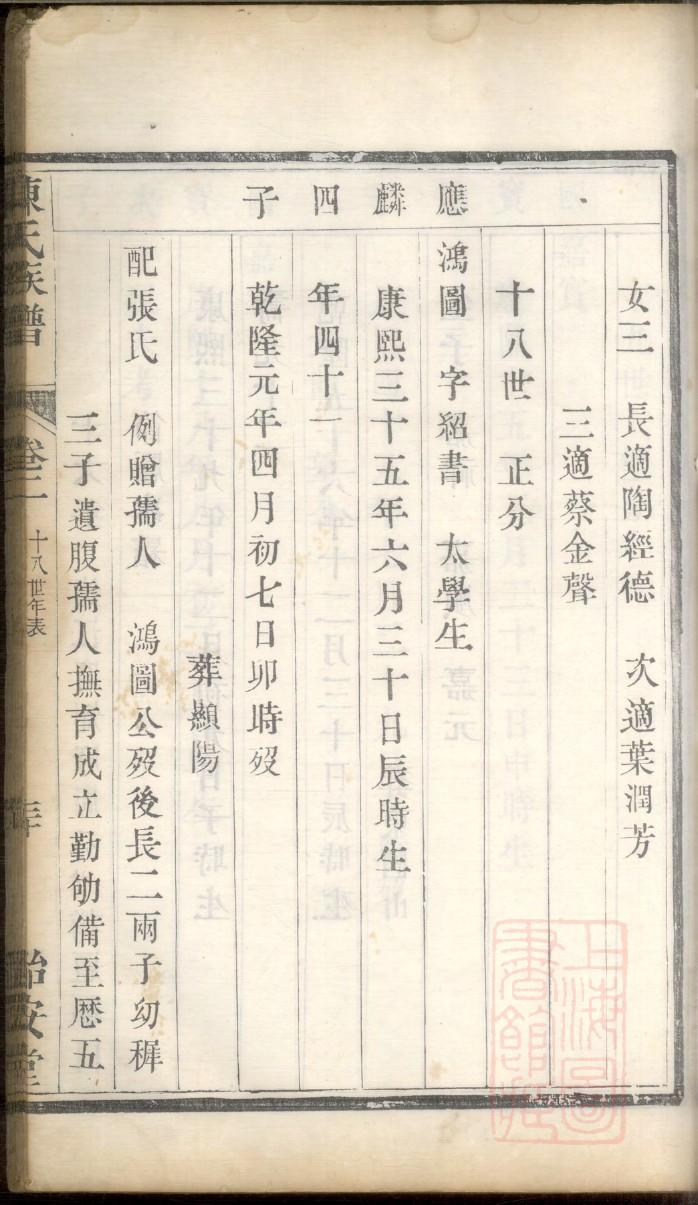 女三 長適陶經德 次適葉潤芳
三適蔡金聲
十八世 正分
應麟四子
鴻圖 字紹書 太學生
康熙三十五年六月三十日辰時生
年四十一
乾隆元年四月初七日卯時歿
葬顯陽
配張氏 例贈孺人 鴻圖公歿後長二兩子幼穉
三子遺腹孺人撫育成立勤劬備至歷五
陳氏族譜 卷二 十八世年表 怡安堂
上海圖書館藏